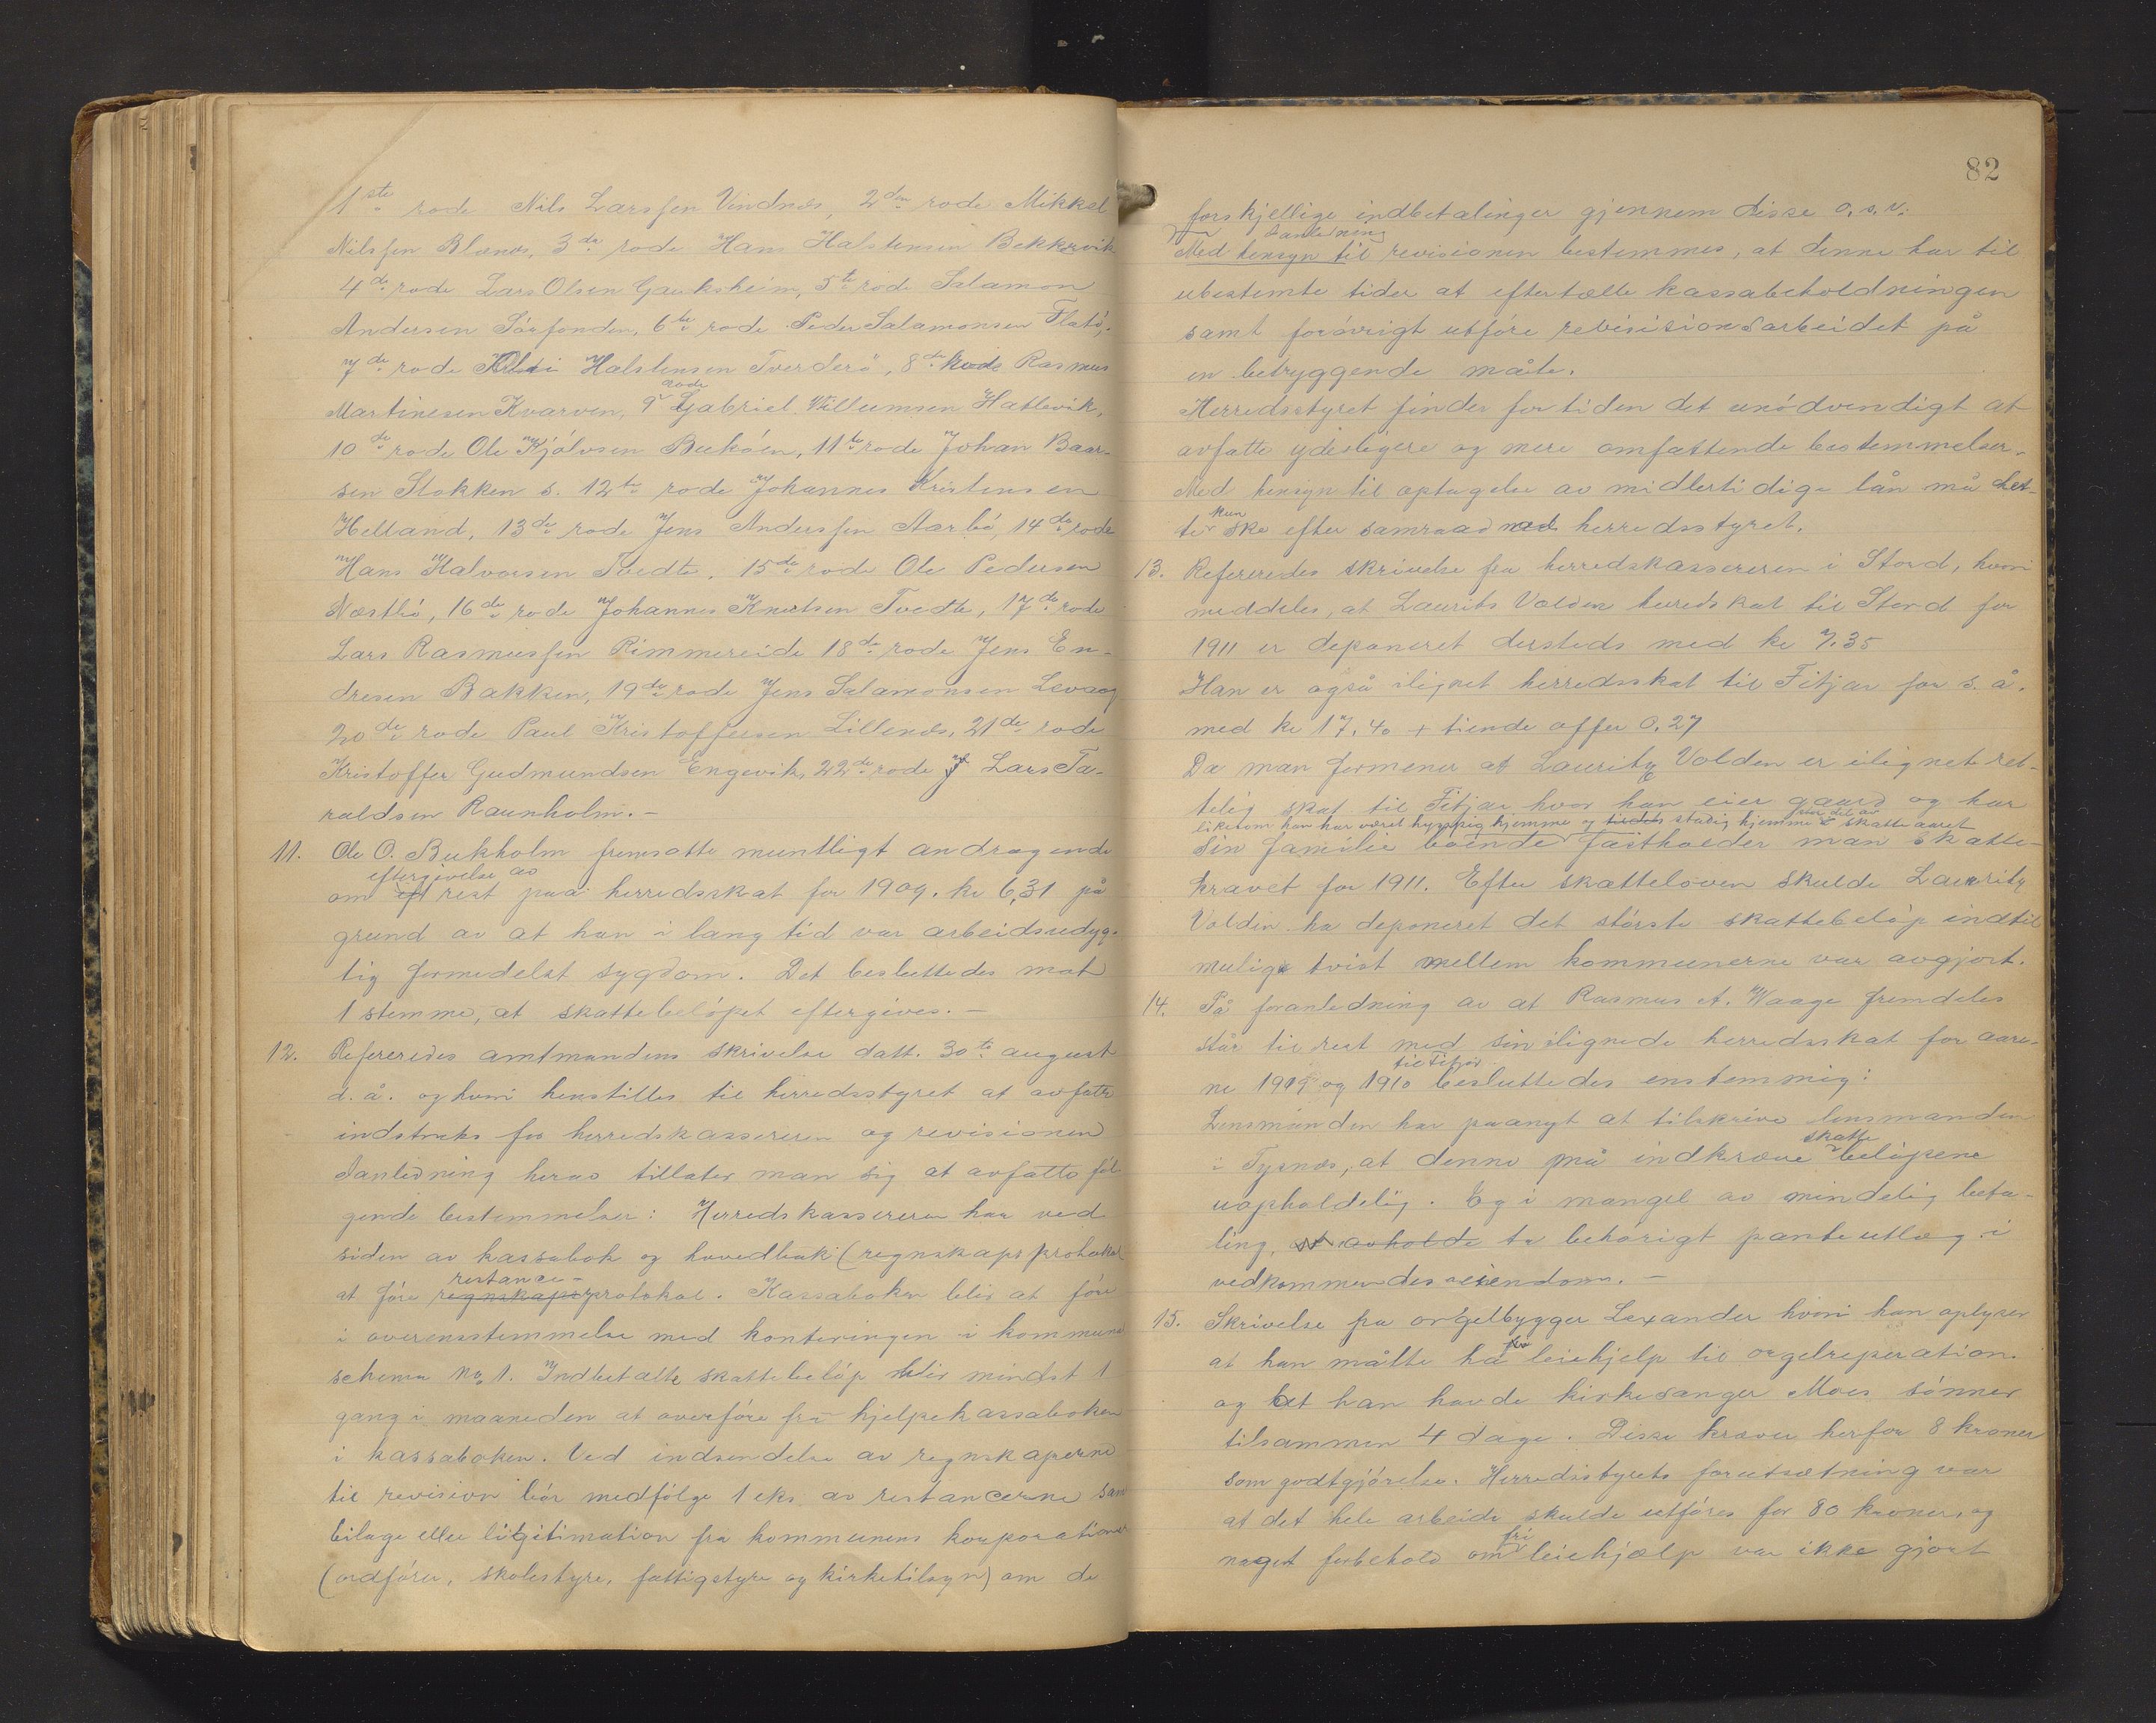 1ste rode Nils Larssen Vindnes, 2den rode Mikkel
Nilssen Blænes, 3die rode Hans Halstensen Bekkevik
4de rode Lars Olsen Gauksheim, 5te rode Salamon
Andersen Sørfonden, 6te rode Peder Salamonsen Flatø,
7de rode Halstensen Tverderö, 8de rode Rasmus
Martinesen Kvarven, 9de rode Gabriel Willumsen Hatlevik,
10de rode Ole Kjölvsen Buköen, 11te rode Johan Baar-
sen Stokken s. 12te rode Johannes Kristensen
Helland, 13de rode Jens Anderssen Aarbö, 14de rode
Hans Halvorsen Tvedte, 15de rode Ole Pedersen
Næstbö, 16de rode Johannes Knutsen Tvedte, 17de rode
Lars Rasmussen Rimmereide 18de rode Jens En-
dresen Bakken, 19de rode Jens Salamonsen Levaag
20de rode Paul Kristoffersen Lillenes, 21de rode
Kristoffer Gudmundsen Engevik, 22de rode Lars Ta-
raldsen Raunholm. -
11. Ole O. Bukholm fremsatte muntligt andragende
om eftergivelse av rest paa herredsskat for 1909. kr 6,31 på
grund av at han i lang tid var arbeidsudyg-
tig formedelst sygdom. Det besluttedes mot
1 stemme, at skattebelöpet eftergives. -
12. Refereredes amtmandens skrivelse datt. 30te august
d. å. og hvori henstilles til herredsstyret at avfatte
instruks for herredskassereren og revisionen
Ianledning herav tillater man sig at avfatte föl-
gende bestemmelser: Herredskassereren har ved
siden av kassabok og hovedbok (regnskapsprotokol
at före restance-protokol. Kassaboken blir at före
i overensstemmelse med konteringen i kommune
schema No 1. Indbetalte skattebelöp blir mindst 1
gang i maaneden at overföre fra hjelpekassaboken
i kassaboken. Ved indsendelse av regnskaperne
til revision bör medfölge 1 eks. av restancerne samt
bilage eller ligitimation fra kommunens korporationer
(ordförer, skolestyre, fattigstyre og kirketilsyn) om de
82
forskjellige indbetalinger gjennem disse o.s.v.
Ianledning
Med hensyn til revisionen bestemmes, at denne har til
ubestemte tider at eftertælle kassabeholdningen
samt forövrigt utföre revisitionsarbeidet på
en betryggende måte.
Herredsstyret finder for tiden det unödvendigt at
avfatte yderligere og mere omfattende bestemmelser.
Med hensyn til optagelse av midlertidige lån må det-
te kun ske efter samraad med herredsstyret.
13. Refereredes skrivelse fra herredskassereren i Stord, hvori
meddeles, at Laurits Volden herredskat til Stord for
1911 er deponeret dersteds med kr 7.35
Han er også ilignet herredsskat til Fitjar for s. å.
med kr 17.40 + tiende offer 0.27
Da man formener at Lauritz Volden er ilignet ret-
telig skat til Fitjar hvor han eier gaard og har
likesom han har været hyppig hjemme og stadig hjemme en del av skatteaaret
sin familie boende fastholder man skatte-
kravet for 1911. Efter skatteloven skulde Lauritz
Volden ha deponeret det störste skattebelöp indtil
mulige tvist mellem kommunerne var avgjort.
14. På foranledning av at Rasmus A. Waage fremdeles
står til rest med sin ilignede herredsskat for aare-
ne 1909 og 1910 til Fitjar besluttedes enstemmig:
Lensmanden har paanyt at tilskrive lensmanden
i Tysnes, at denne må indkræve skattebelöpene
uopholdelig. Og i mangel av mindelig beta-
ling, at avholde ta behörigt panteutlæg i
vedkommendes eiendom. -
15. Skrivelse fra orgelbygger Lexander hvori han oplyser
at han måtte ha fri leiehjelp til orgelreperation.
og at han havde kirkesanger Moes sönner
tilsammen 4 dage. Disse kræver herfor 8 kroner
som godtgjörelse. Herredsstyrets forutsætning var
at det hele arbeide skulde utföres for 80 kroner, og
noget forbehold om fri leiehjælp var ikke gjort